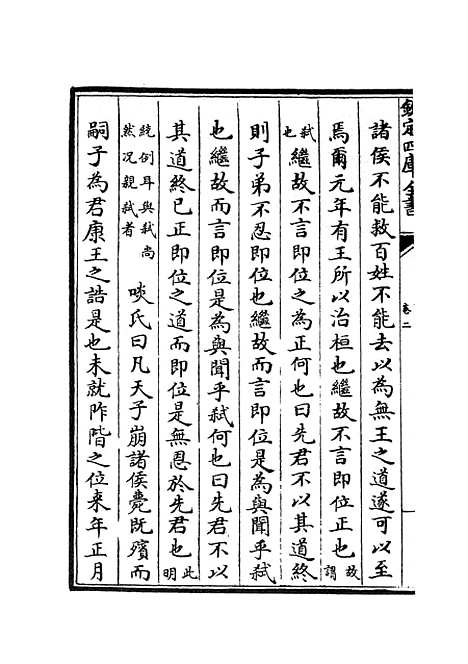 欽定四庫全書
卷二
諸侯不能救百姓不能去以為無王之道遂可以至
焉爾元年有王所以治桓也繼故不言即位正也故謂
弑也繼故不言即位之為正何也曰先君不以其道終
則子弟不忍即位也繼故而言即位是為與聞乎弑
也繼故而言即位是為與聞乎弑何也曰先君不以
其道終已正即位之道而即位是無恩於先君也此明
統例耳與弑尚然况親弑者啖氏曰凡天子崩諸侯薨既殯而
嗣子為君康王之誥是也未就阼階之位來年正月